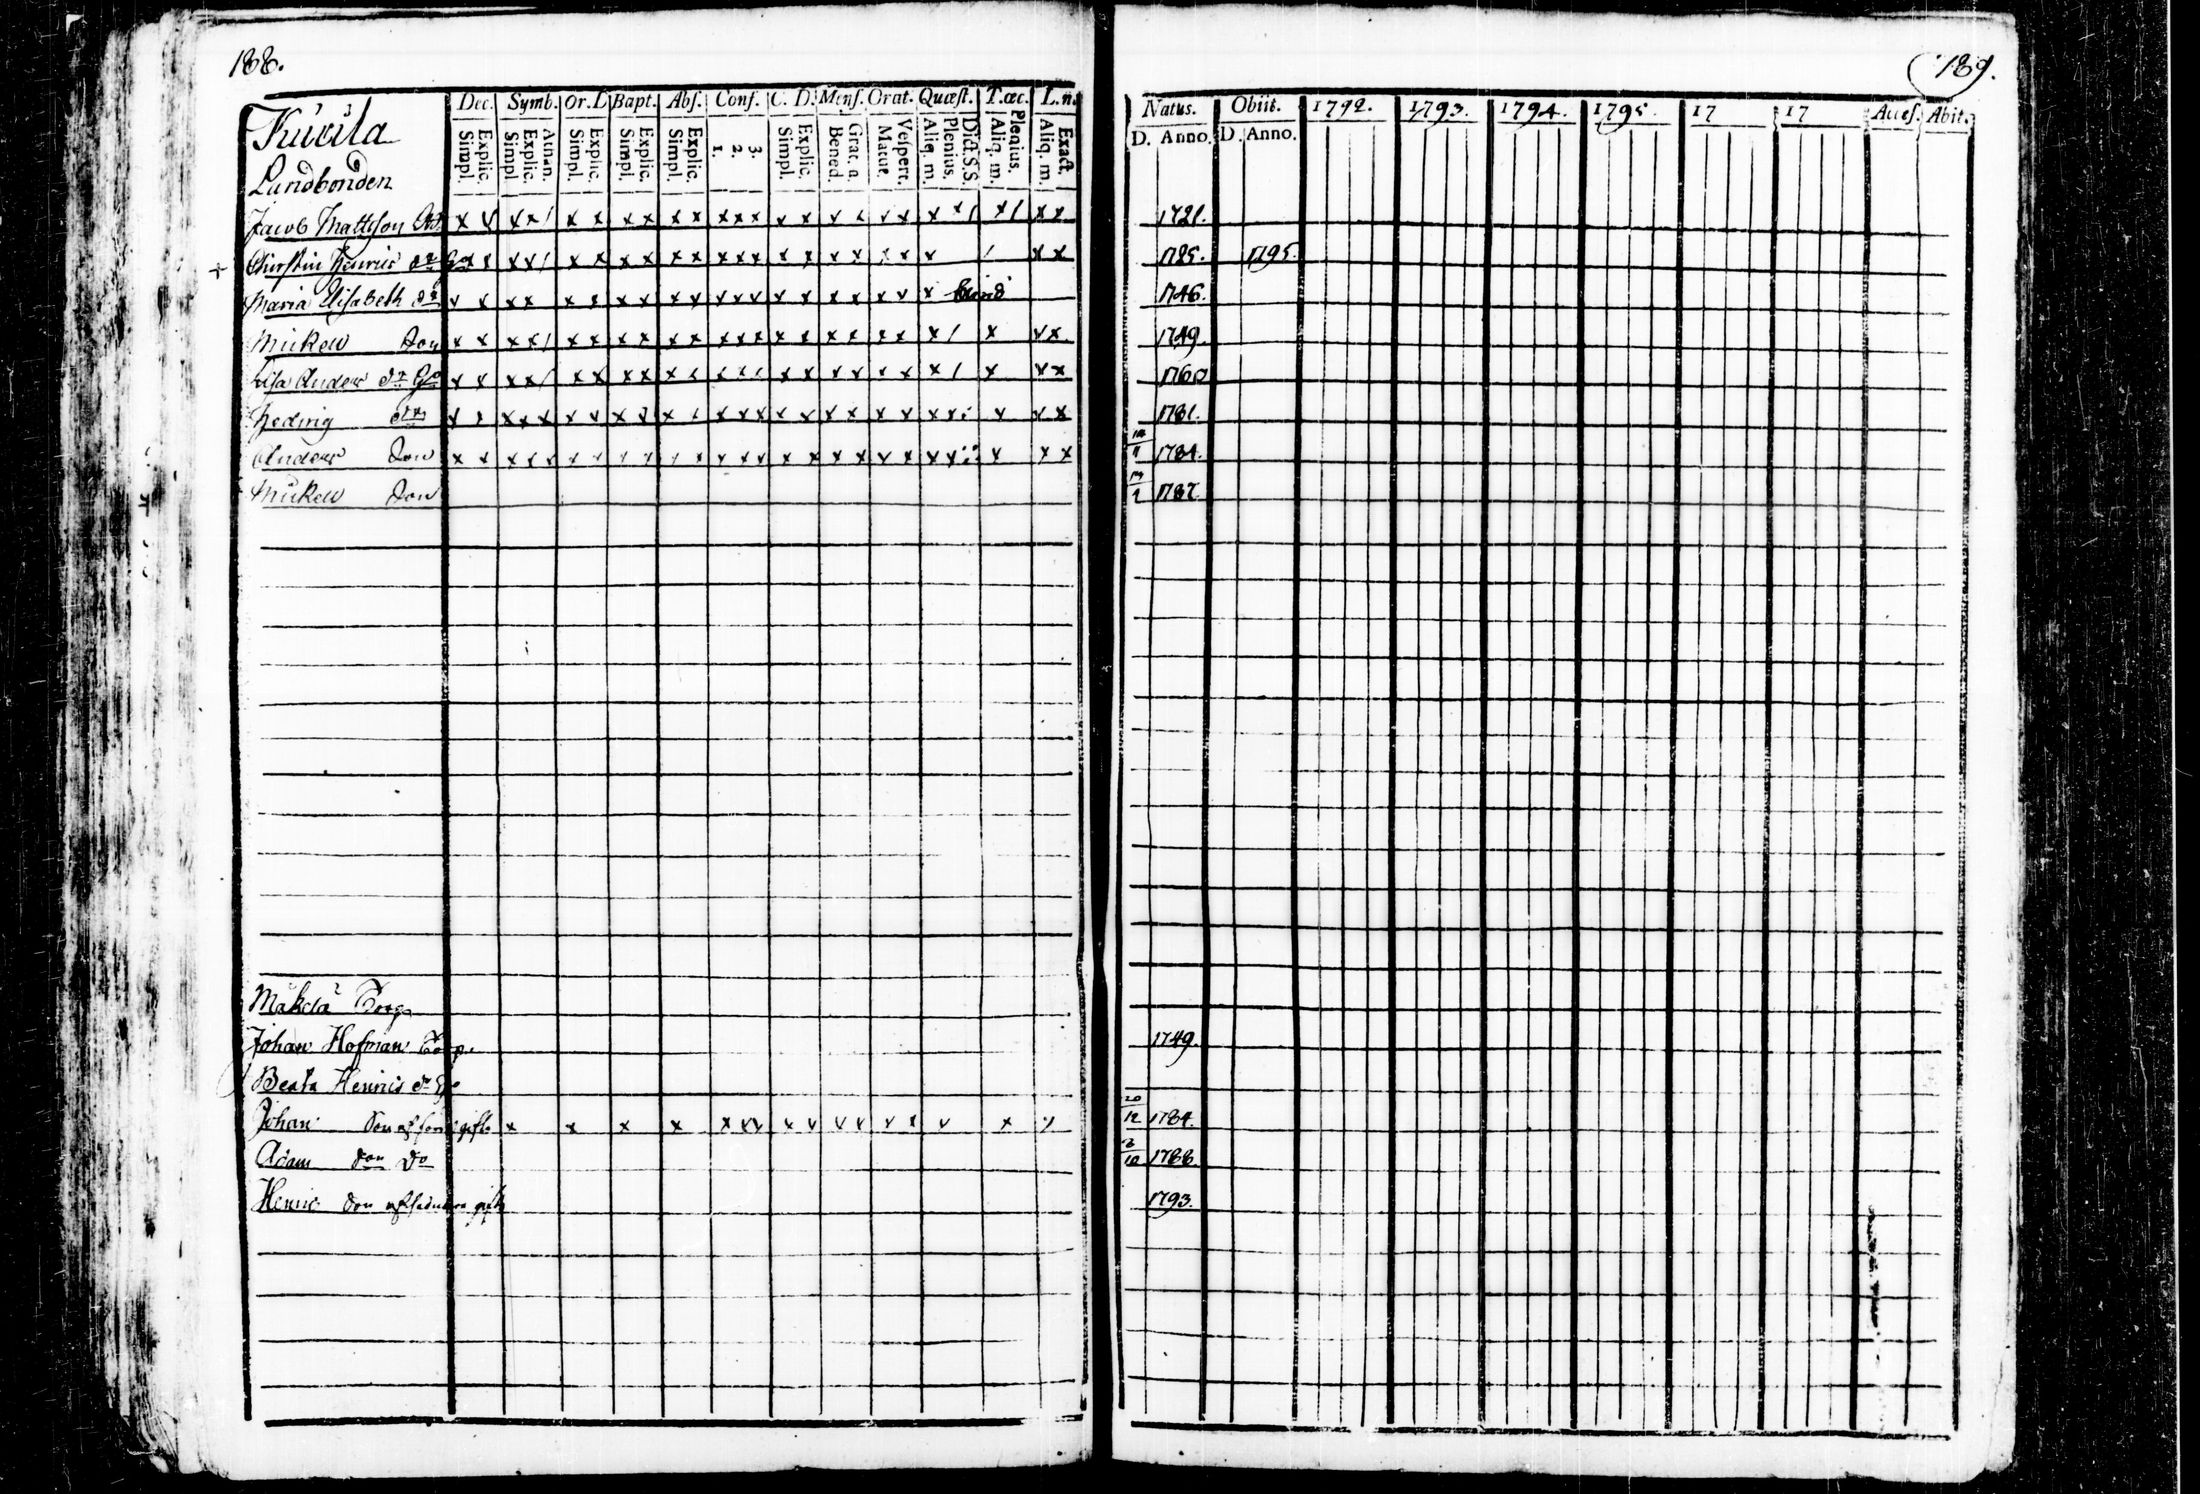 188.
189.
Dec. Symb. Or. D Bapt. Abs. Conf. C. D. Mens. Orat. Quæst. T. œc. L. n.
Explic. Simpl. Athan. Explic. Simpl. Explic. Simpl. Explic. Simpl. Explic. Simpl. 3. 2. 1. Explic. Simpl. Grat. a. Bened. Vespert. Matut. Dict. S. S. Plenius. Aliq. m. Plenius. Aliq. m. Exact. Aliq. m.
Natus. Obiit. 1792. 1793. 1794. 1795. 17 17 Acces. Abit.
D. Anno. D. Anno.
Landbonden
Jacob Mattsson 1721.
Henrics dr 1725. 1795.
Maria Elisabeth dr blind 1746.
Mickel Son 1749.
Lisa Anders dr 1760
Hedwig dr 1781.
Anders Son 14/11 1784.
Mickel Son 1787.
Mäkelä Torp
Johan Hofman Torp. 1749.
Beata Henrics dr
Johan Son af förra gifte 20/12 1784.
Adam Son Do 3/10 1788.
Henric Son af sednare gifte 1793.